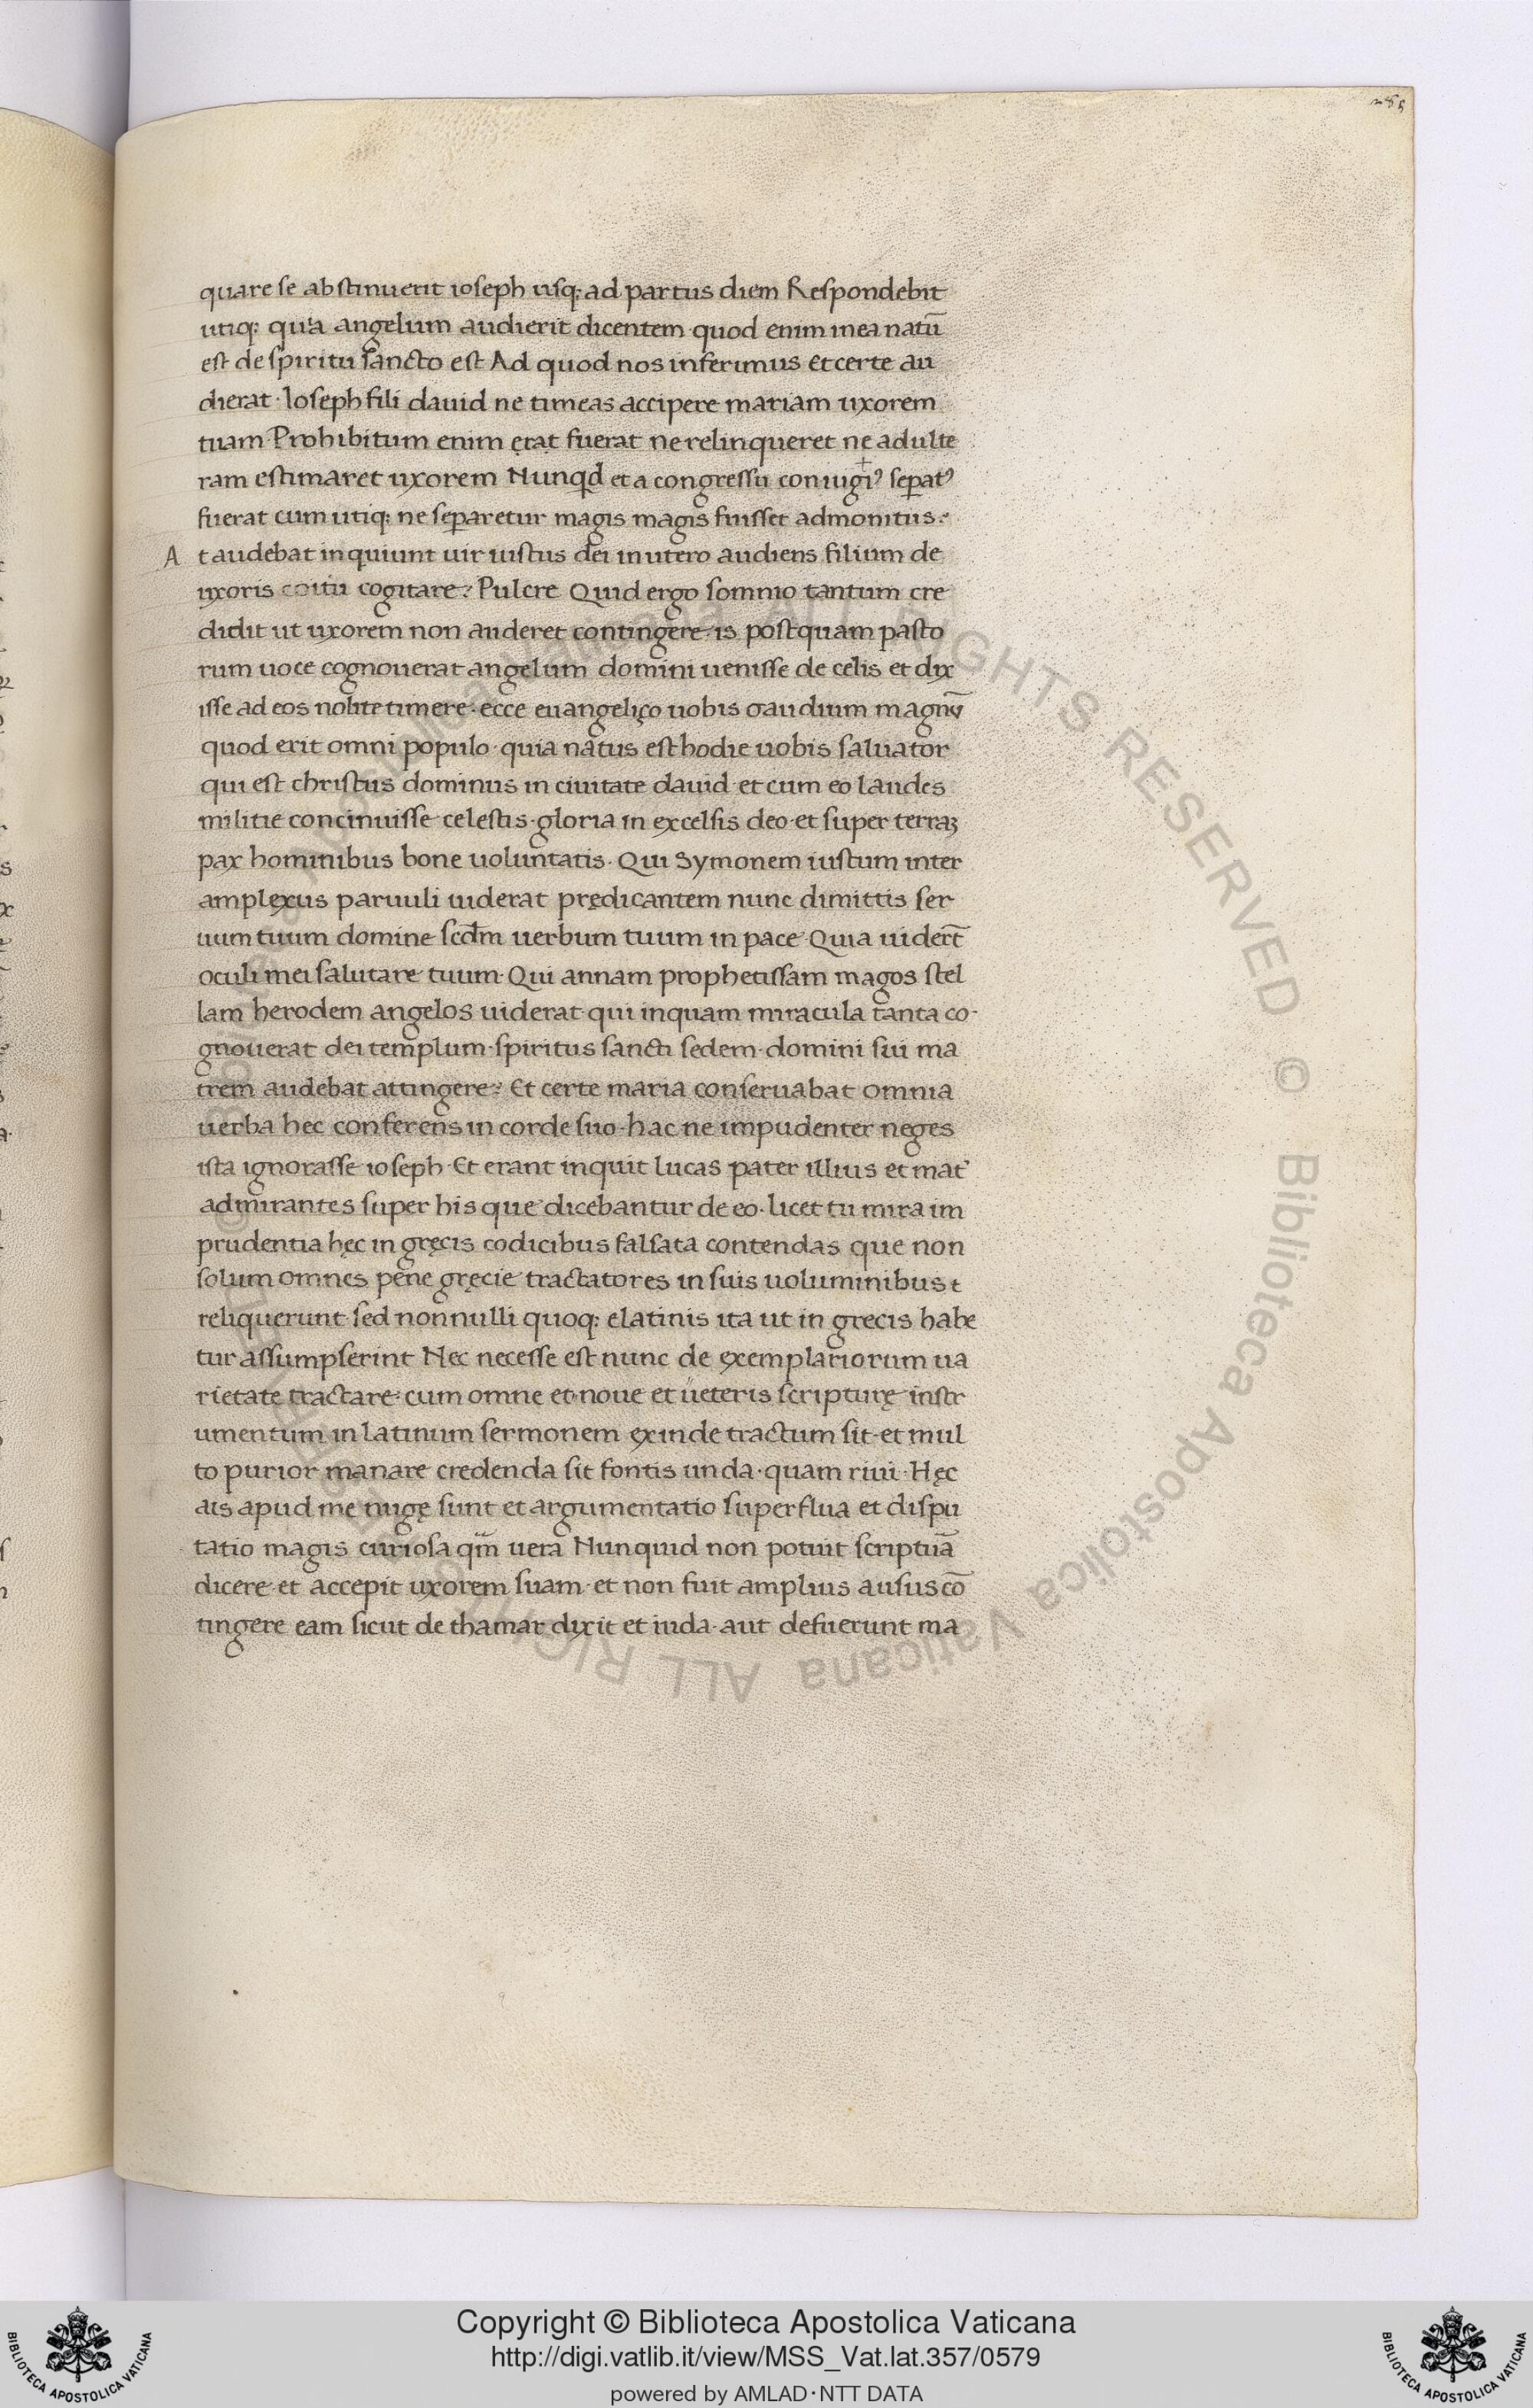 285
quare se abstinuerit ioseph usq; ad partus diem Respondebit
utiq; quia angelum audierit dicentem quod enim in ea natū
est de spiritu sancto est Ad quod nos inferimus et certe au
dierat · Ioseph fili dauid ne timeas accipere mariam uxorem
tuam Prohibitum enim erat fuerat ne relinqueret ne adulte
ram estimaret uxorem Nunqd et a congressu coniugiꝰ sepatꝰ
fuerat cum utiq; ne separetur magis magis fuisset admonitus.
At audebat inquiunt uir iustus dei in utero audiens filium de
uxoris coitu cogitare? Pulcre Quid ergo somnio tantum cre
didit ut uxorem non auderet contingere· is postquam pasto
rum uoce cognouerat angelum domini uenisse de celis et dix
isse ad eos nolite timere· ecce euangelico uobis gaudium magnū
quod erit omni populo· quia natus est hodie uobis saluator
qui est christus dominus in ciuitate dauid· et cum eo laudes
militie concinuisse celestis· gloria in excelsis deo· et super terraꝫ
pax hominibus bone uoluntatis· Qui Symonem iustum inter
amplexus paruuli uiderat prędicantem nunc dimittis ser
uum tuum domine scdm uerbum tuum in pace· Quia uidert̄
oculi mei salutare tuum· Qui annam prophetissam magos stel
lam herodem angelos uiderat· qui inquam miracula tanta co-
gnouerat dei templum· spiritus sancti sedem· domini sui ma
trem audebat attingere? Et certe maria conseruabat omnia
uerba hec conferens in corde suo· hac ne impudenter neges
ista ignorasse ioseph· Et erant inquit lucas pater illius et mat̾
admirantes super his que dicebantur de eo· licet tu mira im
prudentia hęc in gręcis codicibus falsata contendas que non
solum omnes pene gręcie tractatores in suis uoluminibus
reliquerunt· sed nonnulli quoq; e latinis ita ut in grecis habe
tur assumpserint Nec necesse est nunc de exemplariorum ua
rietate tractare· cum omne et noue et ueteris scripturę instr
umentum in latinum sermonem exinde tractum sit· et mul
to purior manare credenda sit fontis unda· quam riui· Hęc
ais apud me nugę sunt et argumentatio superflua et dispu
tatio magis curiosa qm̄ uera Nunquid non potuit scriptuā
dicere· et accepit uxorem suam· et non fuit amplius ausus cō
tingere eam sicut de thamar dixit et iuda· aut defuerunt ma
Copyright © Biblioteca Apostolica Vaticana
http://digi.vatlib.it/view/MSS_Vat.lat.357/0579
powered by AMLAD·NTT DATA
BIBLIOTECA APOSTOLICA VATICANA
BIBLIOTECA APOSTOLICA VATICANA